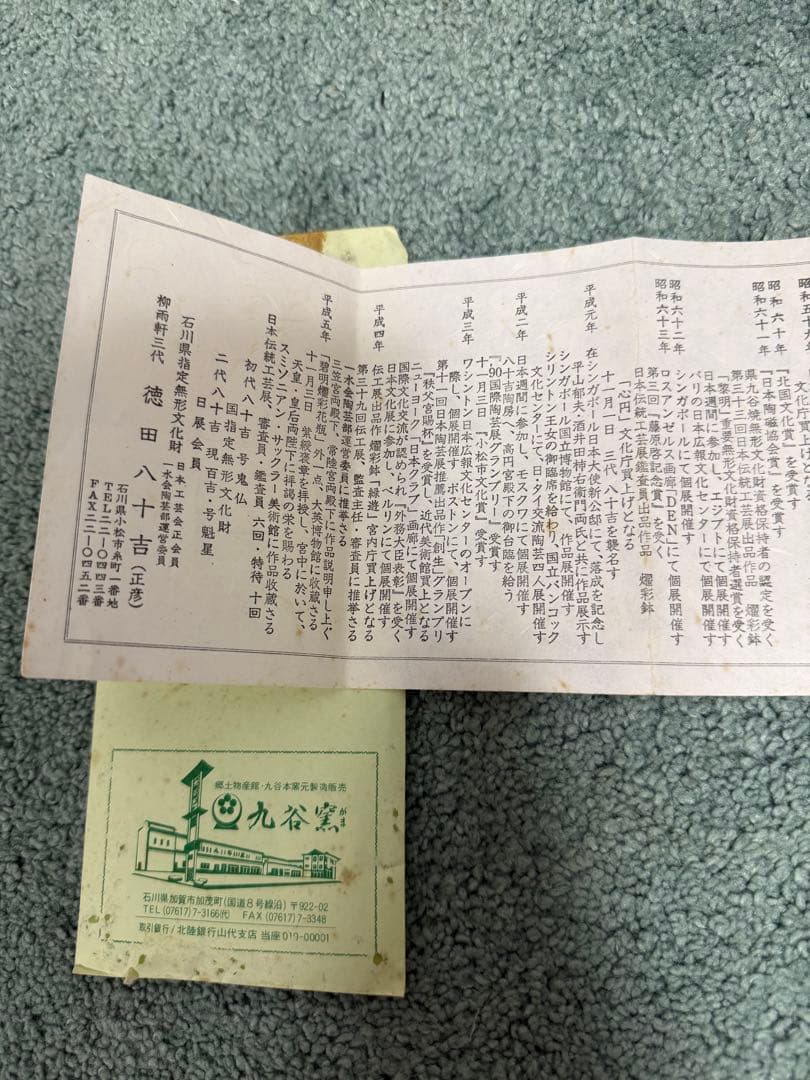 昭和六十年
『北国文化賞』を受賞す
『日本陶磁協会賞』を受賞す
昭和六十一年
県九谷焼無形文化財資格保持者の認定を受く
第三十三回日本伝統工芸展出品作品 燿彩鉢
「黎明」重要無形文化財資格保持者選賞を受く
日本週間に参加し、エジプトにて個展開催す
パリの日本広報文化センターにて個展開催す
昭和六十二年
シンガポールにて個展開催す
ロスアンゼルス画廊「DEN」にて個展開催す
昭和六十三年
第三回『藤原啓記念賞』を受く
日本伝統工芸展鑑査員出品作品 燿彩鉢
「心円」文化庁買上となる
十一月一日 三代 八十吉を襲名す
平成元年
在シンガポール日本大使新公邸にて、落成を記念し
平山郁夫・酒井田柿右衛門両氏と共に作品展示す
シンガポール国立博物館にて、作品展開催す
シリントン王女の御臨席を給わり、国立バンコック
文化センターにて、日・タイ交流陶芸四人展開催す
平成二年
日本週間に参加し、モスクワにて個展開催す
八十吉陶房へ、高円宮殿下の御台臨を給う
『'90国際陶芸展グランプリー』受賞す
十一月三日 『小松市文化賞』受賞す
平成三年
ワシントン日本広報文化センターのオープンに
際し、個展開催す ボストンにて、個展開催す
第十一回日本陶芸展推薦出品作「創生」グランプリ
『秩父宮賜杯』を受賞し、近代美術館買上となる
ニューヨーク「日本クラブ」画廊にて個展開催す
平成四年
国際文化交流が認められ『外務大臣表彰』を受く
日本文化展に参加し、ベルリンにて個展開催す
伝工展出品作 燿彩鉢「緑遊」宮内庁買上げとなる
第三十九回伝工展、監査主任・審査員に推挙さる
一水会陶芸部運営委員に推挙さる
三笠宮両殿下、常陸宮両殿下に作品説明申し上ぐ
平成五年
「碧明燿彩花瓶」外一点、大英博物館に収蔵さる
十一月三日 紫綬褒章を拝授し、宮中に於いて、
天皇・皇后両陛下に拝謁の栄を賜わる
スミソニアン・サックラー美術館に作品収蔵さる
日本伝統工芸展、審査員・鑑査員 六回・特待 十回
初代 八十吉 号 鬼仏
国指定無形文化財
二代 八十吉 現 百吉・号 魁星
日展会員
石川県指定無形文化財
日本工芸会正会員
一水会陶芸部運営委員
柳雨軒三代 徳田八十吉(正彦)
石川県小松市糸町一番地
TEL二二-〇四四三番
FAX二二-〇四五二番
郷土物産館・九谷本窯元製造販売
九谷窯
がま
石川県加賀市加茂町(国道8号線沿)〒922-02
TEL(07617)7-3166(代) FAX(07617)7-3348
取引銀行/北陸銀行山代支店 当座019-00001